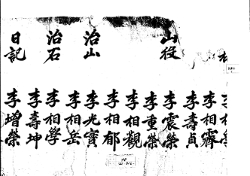 李相齊
李壽貞
山役
李震榮
李重榮
李相觀
李相郁
治山
李光寶
李相岳
治石
李相學
李壽坤
日記
李增榮